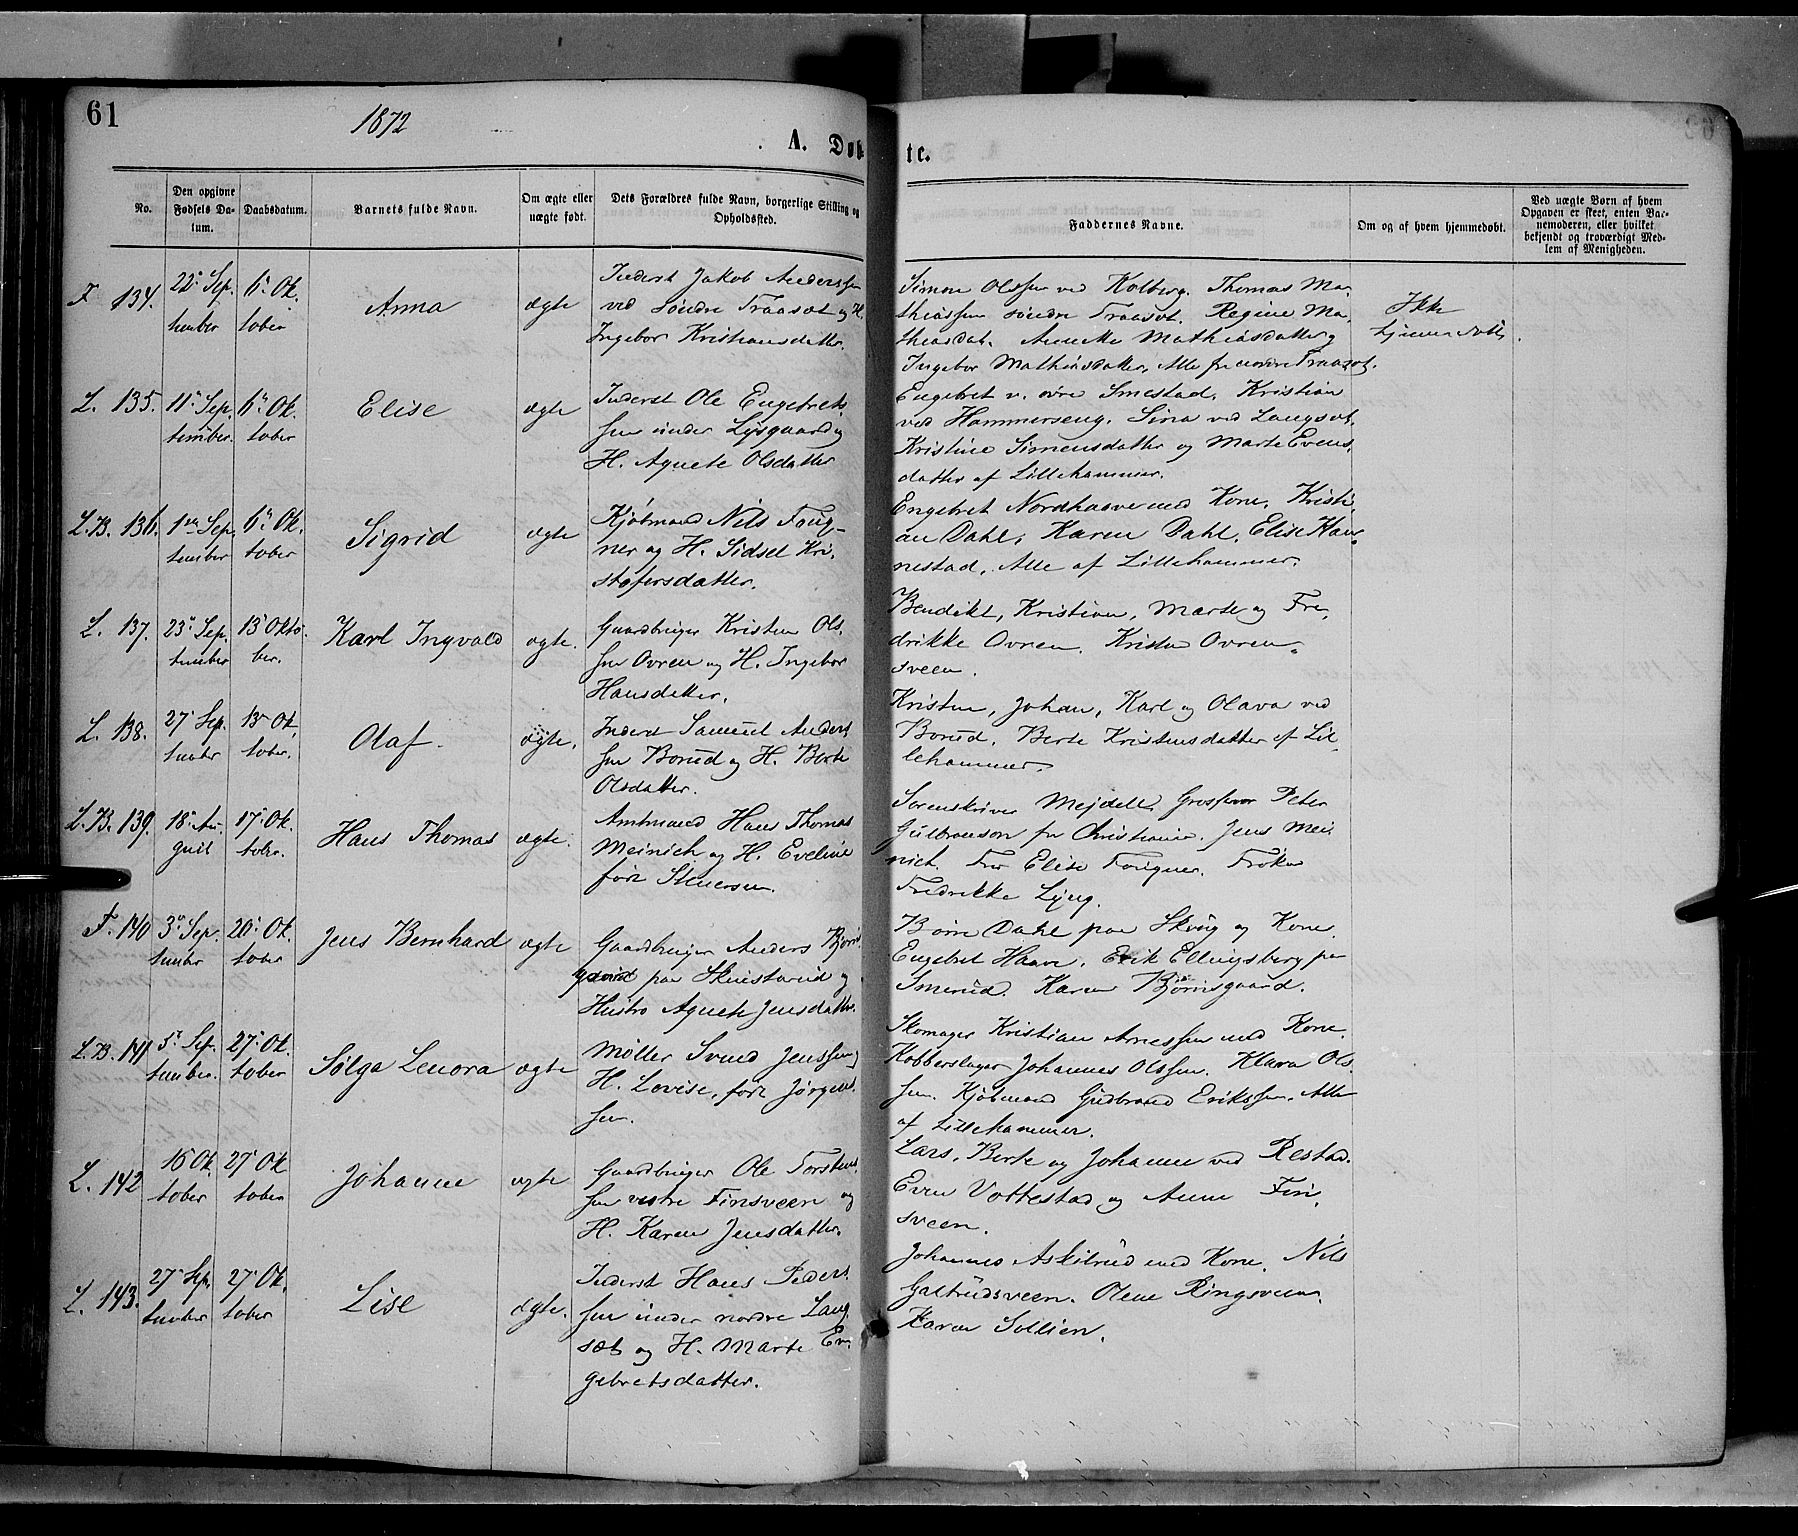 61
1872
A. Døb
te.
No.
Den opgivne Fødsels Da-
tum.
Daabsdatum.
Barnets fulde Navn.
Om ægte eller
uægte født.
Dets Forældres fulde Navn, borgerlige Stilling og
Opholdssted.
Faddernes Navne.
Om og af hvem hjemmedøbt.
Ved uægte Børn af hvem
Opgaven er skeet, enten Bar-
nemoderen, eller hvilket
bekjendt og troværdigt Med-
lem af Menigheden.
F 134. 22 Sep. 6 Ok. Anna ægte Inderst Jakob Anderssen
tember tober ved søndre Traaset og H.
Ingebor Kristiansdatter.
Simon Olssen ved Kolberg. Thomas Ma-
thiassen søndre Traaset. Regine Ma-
thiasdat. Annette Mathiasdatter og
Ingebor Mathiasdatter, Alle fra nordre Traaset.
Ikke
hjemmedøbt.
L. 135. 11 Sep. 6 Ok. Elise ægte Inderst Ole Engebrets
tember. tober sen under Lysgaard og
H. Agnete Olsdatter
Engebret v. øvre Smestad. Kristian
ved Hammerseng. Sina ved Langset.
Kristine Simensdatter og Marte Evens-
datter af Lillehammer.
L.B. 136. 1 Sep. 6 Ok. Sigrid ægte Kjøbmand Nils Foug-
tember tober ner og H. Sidsel Kri-
stofersdatter.
Engebret Nordhaave med Kone. Kristi-
an Dahl, Karen Dahl. Elise Han-
nestad, Alle af Lillehammer.
L. 137. 23 Sep. 13 Okto- Karl Ingvald ægte. Gaardbruger Kristen Ols-
tember ber. sen Ovren og H. Ingebor
Hansdatter.
Bendikt, Kristian, Marte og Fre-
drikke Ovren. Kristen Ovren-
sveen.
L. 138. 27 Sep. 13 Ok. Olaf. ægte. Inderst Samuel Anders
tember tober. sen Borud og H. Berte
Olsdatter.
Kristen, Johan, Karl og Olava ved
Borud. Berte Kristensdatter af Lil-
lehammer.
L.B. 139. 18 Au- 17 Ok. Hans Thomas ægte. Amtmand Hans Thomas
gust tober. Meinich og H. Eveline
født Stenersen.
Sorenskriver Mejdell. Grosserer Peter
Gulbranson fra Christiania. Jens Mei
nich. Fru Elise Fougner. Frøken
Fredrikke Lyng.
F. 140 3 Sep. 20 Ok. Jens Bernhard ægte Gaardbruger Anders Bjørns
tember tober gaard paa Skuisterud og
Hustro Agnete Jensdatter.
Børre Dahl paa Skvig og Kone.
Engebret Haave. Erik Ellingsberg paa
Smerud. Karen Bjørnsgaard.
L.B. 141 5 Sep. 27 Ok. Sølga Lenora ægte Møller Svend Jenssen og
tember. tober H. Lovise, født Jørgens
sen.
Skomager Kristian Arnessen med Kone.
Kobberslager Johannes Olssen. Klara Ols-
sen. Kjøbmand Gudbrand Erikssen. Alle
af Lillehammer.
L. 142 16 Ok. 27 Ok Johanne ægte Gaardbruger Ole Torstens
tober tober sen vestre Finsveen og
H. Karen Jensdatter.
Lars, Berte og Johanne ved Restad.
Even Vottestad og Anne Fin-
sveen.
L. 143. 27 Sep. 27 Ok. Lise ægte. Inderst Hans Peders
tember tober sen under nordre Lang
sæt og H. Marte En-
gebretsdatter.
Johannes Askilrud med Kone. Nils
Galtrudsveen. Olene Ringsveen.
Karen Sollien.